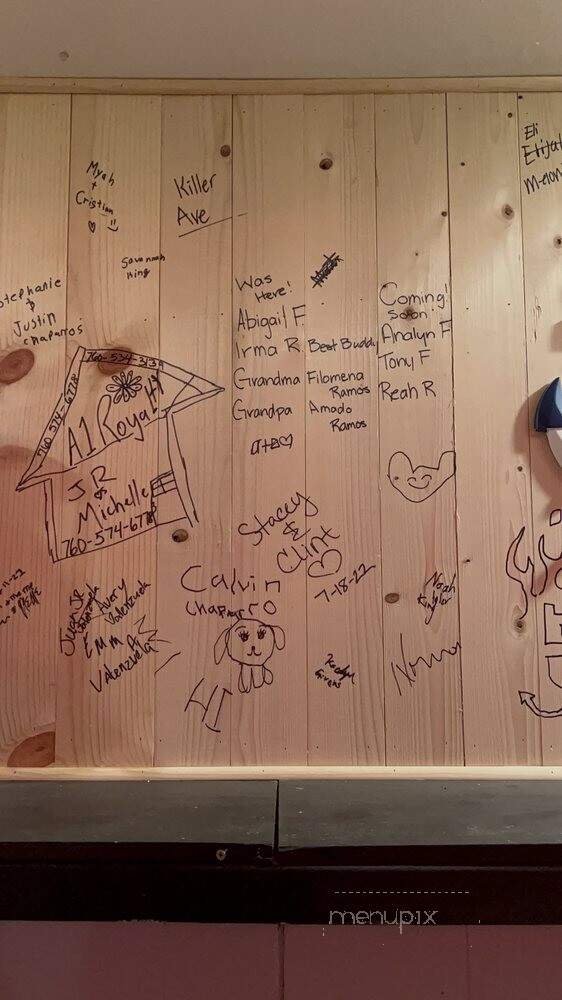 Eli
Myah
+
Cristian
Killer
Ave
Savannah
King
Stephanie
&
Justin
Chaparros
Was
Here!
Abigail F
Irma R Best Buddy
Grandma Filomena
Ramos
Grandpa Amado
Ramos
Coming!
Soon
Analyn F
Tony F
Reah R
760 574-6778
A1 Royalty
JR
&
Michelle
760-574-6778
Stacey
&
Clint
7-18-22
Calvin
Chaparro
HI
Avery
Valenzuela
Emma
Valenzuela
Noah
Norma
menupix